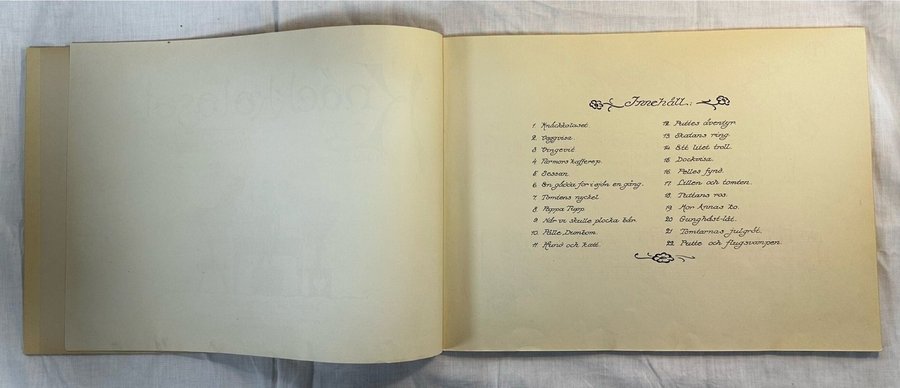 Innehåll:
1. Knäckkalaset.
2. Vaggvisa.
3. Vingevit
4. Farmors kafferep.
5. Sessan.
6. En gädda for i sjön en gång.
7. Tomtens nyckel
8. Pappa Tupp
9. När vi skulle plocka bär.
10. Pålle Dumbom.
11. Hund och katt.
12. Puttes äventyr
13. Skatans ring.
14. Ett litet troll.
15. Dockvisa.
16. Pelles fynd.
17. Lillen och tomten.
18. Tuttans ros.
19. Mor Annas ko.
20. Gunghäst-låt.
21. Tomtarnas julgröt.
22. Putte och flugsvampen.